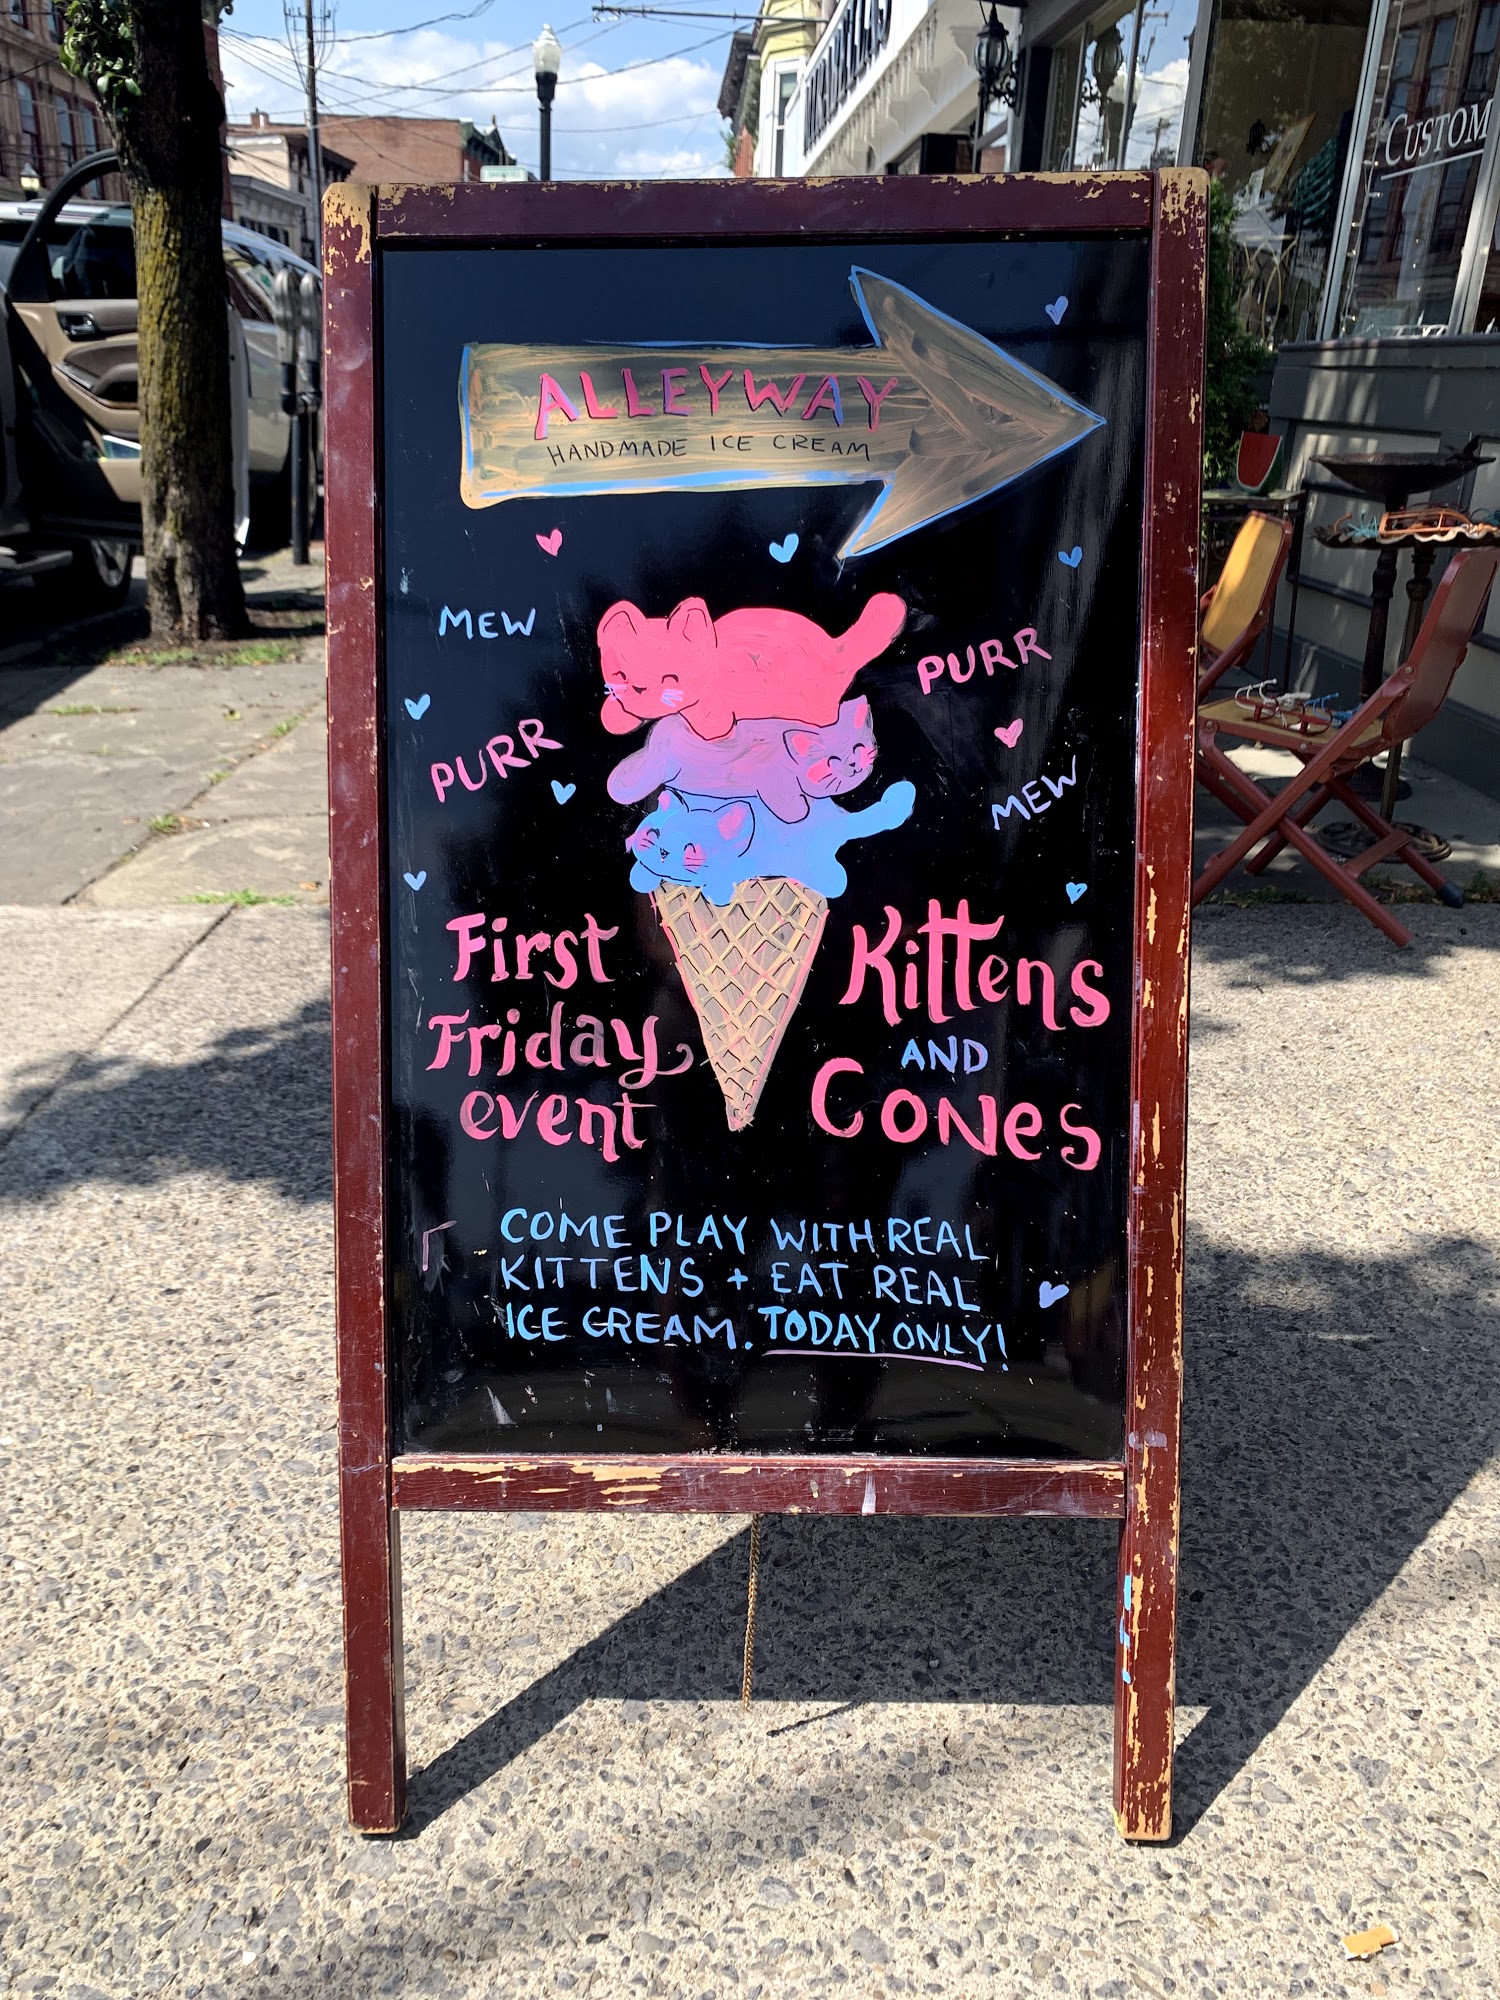 CUSTOM
ALLEYWAY
HANDMADE ICE CREAM
MEW
PURR
PURR
MEW
First
Friday
event
Kittens
AND
Cones
COME PLAY WITH REAL
KITTENS + EAT REAL
ICE CREAM. TODAY ONLY!